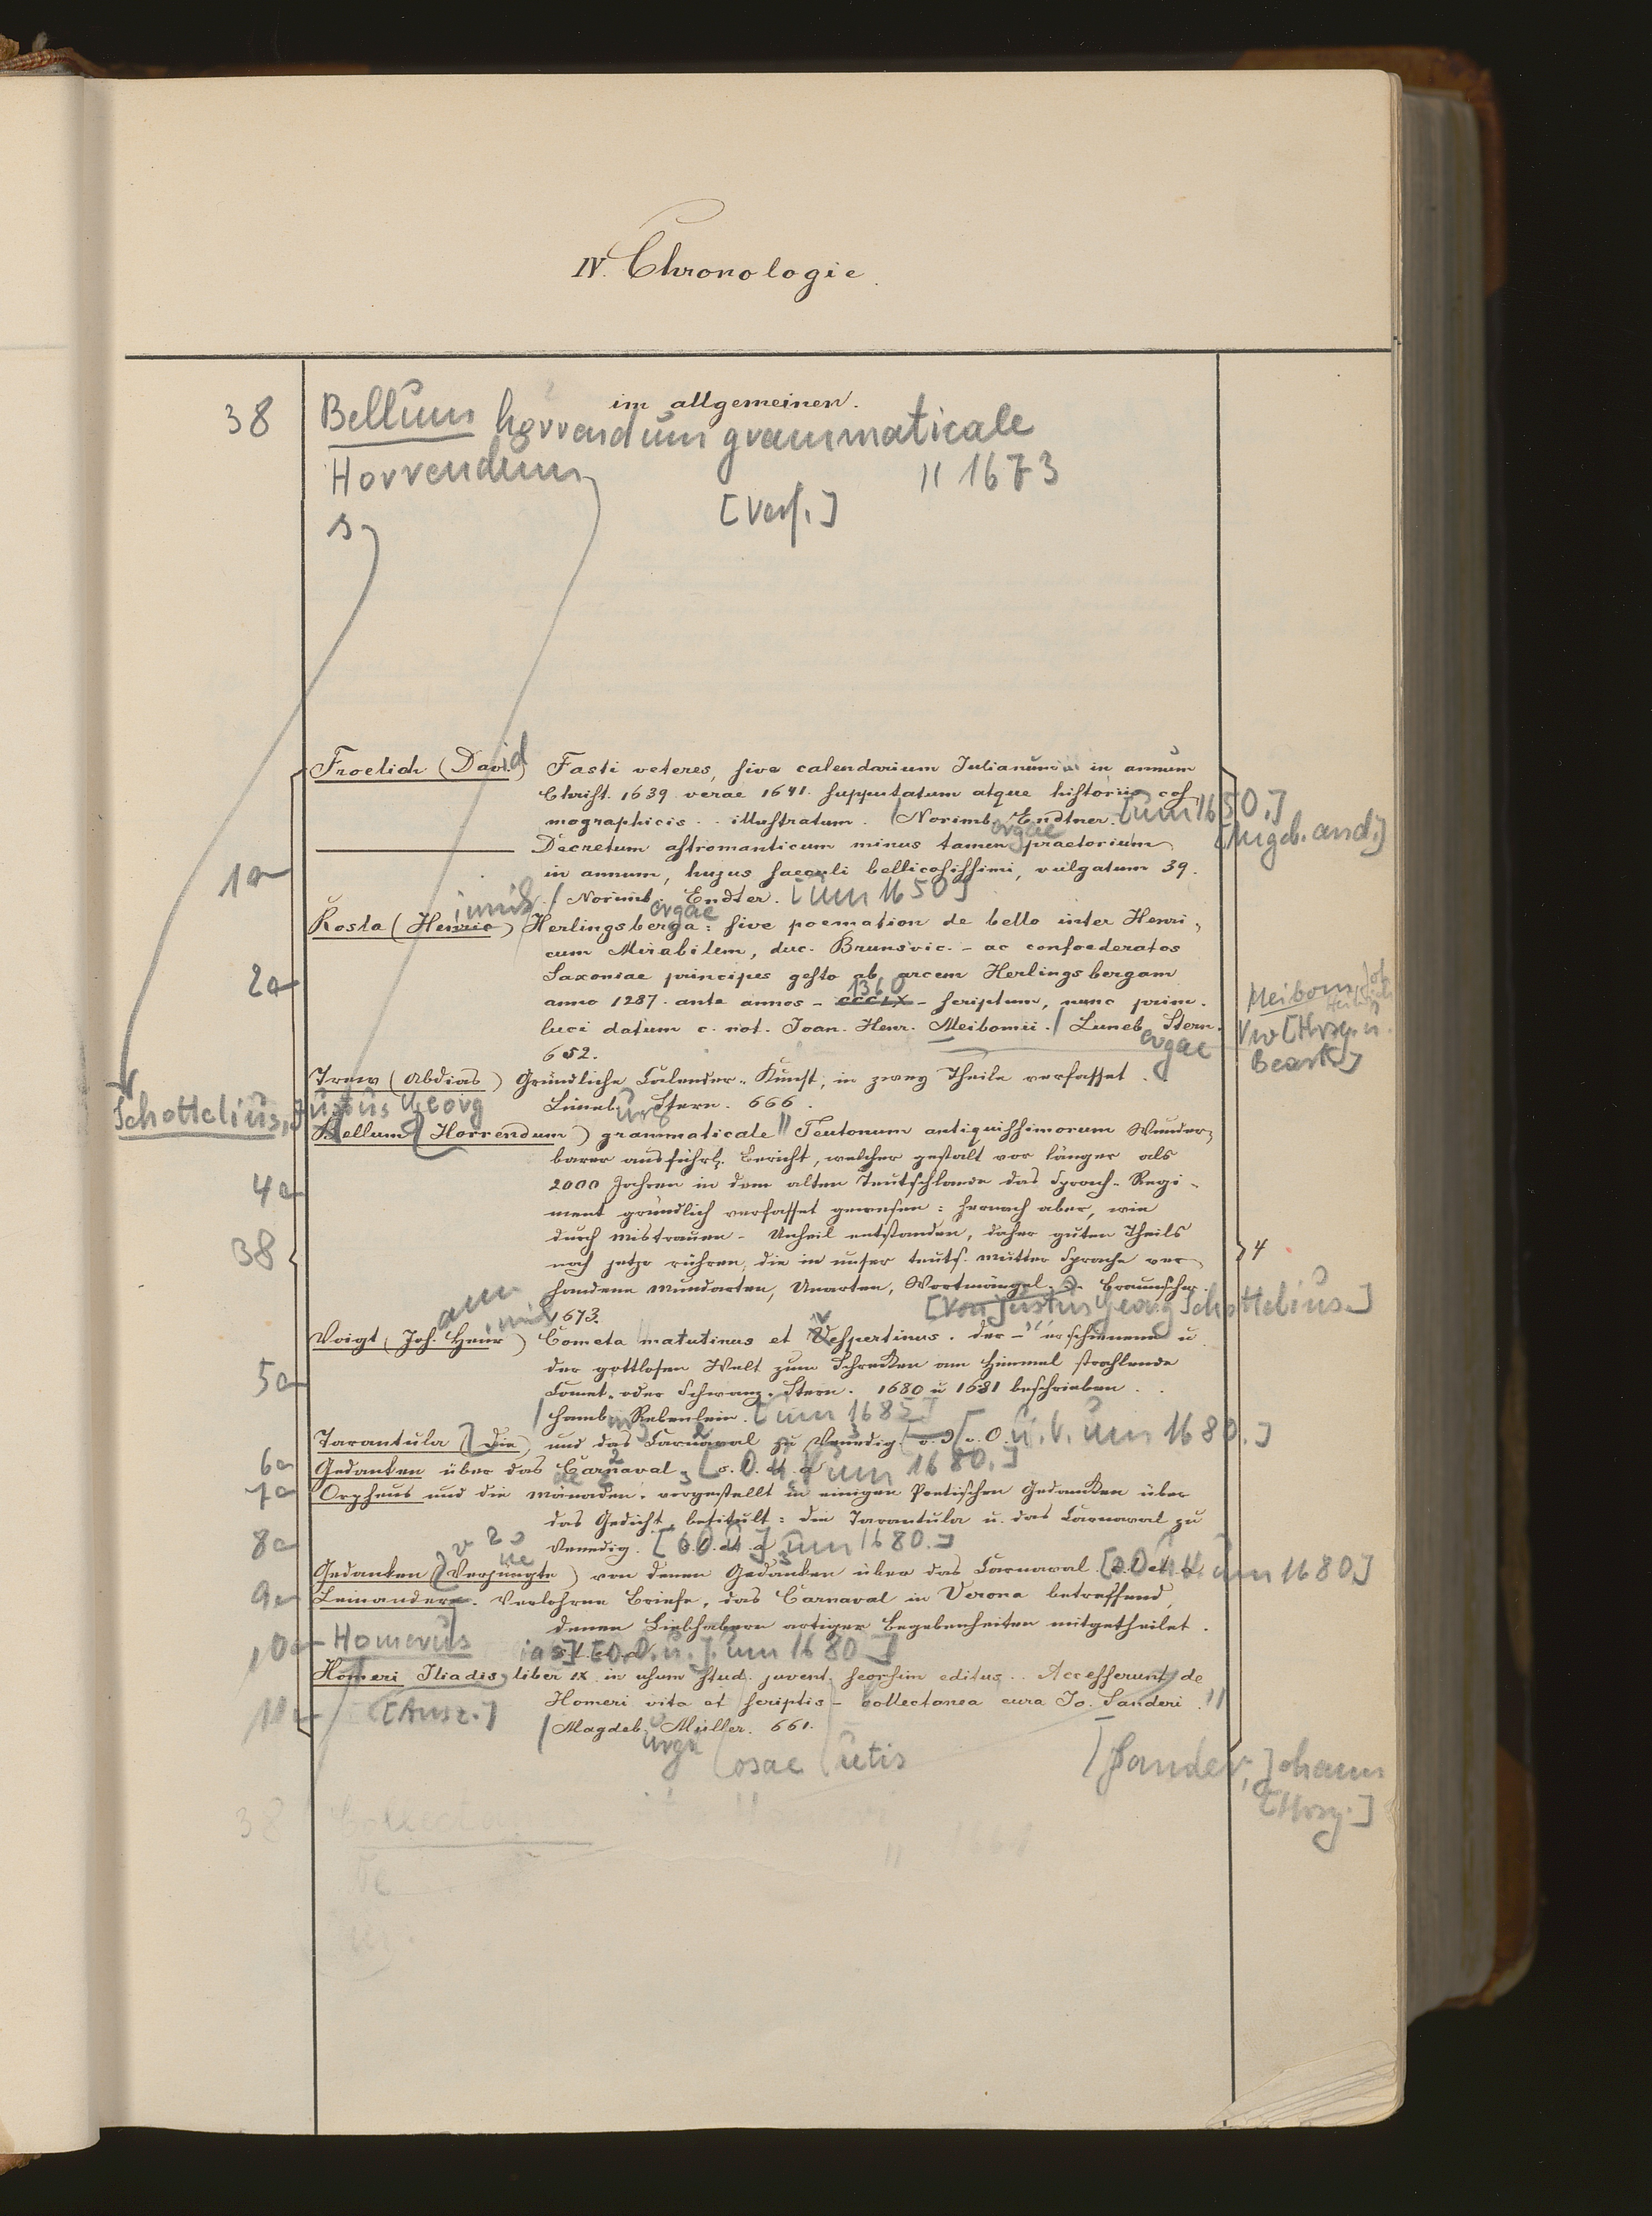 IV. Chronologie.
im allgemeinen.
38 Bellum horrendum grammaticale
Horrendum // 1673
s [Verf.]
Froelich (David) Fasti veteres, sive calendarium Julianum in annum
Christ. 1639 verae 1641. supputatum atque historiis cos-
mographicis .. illustratum. / Norimb. Endtner. [um 1650.]
[Angeb. and.]
Decretum astromanticum minus tamen praetorium
1a in annum, hujus saeculi bellicosissimi, vulgatum 39.
/ Norimb. Endter. [um 1650]
Rosla (Henric) Herlingsberga: sive poemation de bello inter Henri-
cum Mirabilem, duc. Brunsvic. - ac confoederatos
2a Saxoniae principes gesto ab arcem Herlingsbergam
anno 1287. ante annos - CCCLX - 1360 scriptum, nunc prim.
luci datum c. not. Joan. Henr. Meibomii. / Luneb. Stern.
652.
Meibom, Joh. Heinrich
[Hrsg. u.
Bearb.]
Trew (Abdias) Gründliche Calender-Kunst, in zwey Theile verfasset.
Lüneb. Stern. 666.
Schottelius, Justus Georg
Bellum (Horrendum) grammaticale // Teutonum antiquissimorum Wunder-
barer ausführl. Bericht, welcher gestalt vor länger als
4a 2000 Jahren in dem alten Teutschlande das Sprach-Regi-
ment gründlich verfasset gewesen: hernach aber, wie
durch Mistrauen - Unheil entstanden, daher guten Theils
38 noch jetzo rühren, die in unser teuts. Mutter Sprache ver- 4
handene Mundarten, Unarten, Wortmängel. Braunschw.
1673. [Von Justus Georg Schottelius.]
Voigt (Joh. Henr) Cometa matutinus et Vespertinus. der - erschienene u
der gottlosen Welt zum Schrecken am Himmel strahlende
5a Comet- oder Schwanz-Stern. 1680 u 1681 beschrieben.
/ Hamb. Rebenlein. [um 1685]
Tarantula (Die) und das Carnaval zu Venedig. [o. O. u. V. um 1680.]
6a Gedanken über das Carnaval. [o. O. u. V. um 1680.]
7a Orpheus und die Mänaden. vorgestellt in einigen Poetischen Gedanken über
das Gedicht, betitult: die Tarantula u. das Carnaval zu
8a Venedig. [o. O. u. um 1680.]
Gedanken (Verjüngte) von denen Gedanken über das Carnaval. [o. O. u. V. um 1680]
9a Leinander. Verlohrne Briefe, das Carnaval in Verona betreffend,
denen Liebhabern artiger Begebenheiten mitgetheilet.
10a Homerus [o. O. u. J. um 1680]
Homeri Iliadis liber IX in usum stud. juvent. seorsim editus .. Accesserunt de
11a [Ausz.] Homeri vita et scriptis - collectanea cura Jo. Sanderi. //
/ Magdeb. Müller. 661.
osae utis
[Sander, Johann
[Hrsg.]
38 Collecta